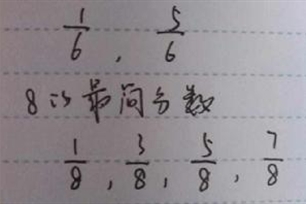 1/6 , 5/6
8的最简分数
1/8 , 3/8 , 5/8 , 7/8